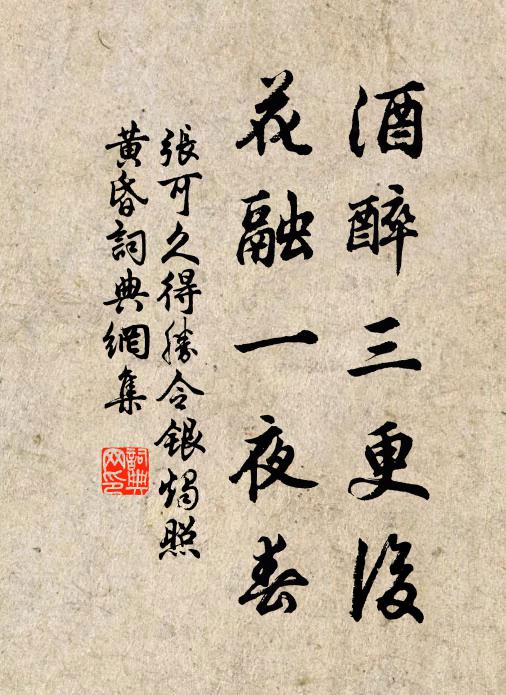 酒醉三更後
花融一夜春
張可久得勝令銀燭照
黃昏詞典網集
詞典网印